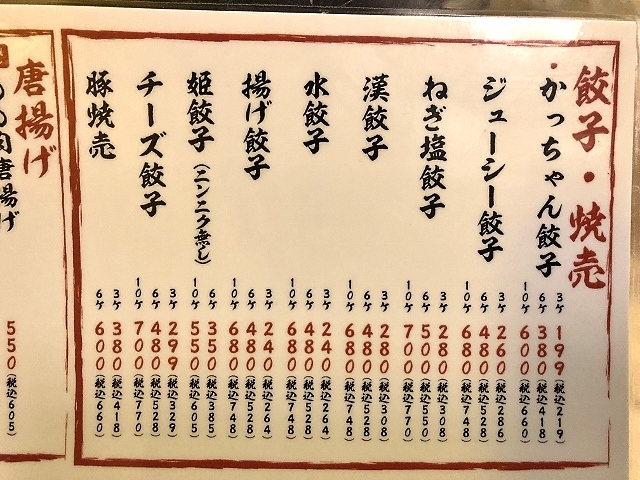 餃子・焼売
かっちゃん餃子
3ケ 199(税込219)
6ケ 380(税込418)
10ケ 600(税込660)
ジューシー餃子
3ケ 260(税込286)
6ケ 480(税込528)
10ケ 680(税込748)
ねぎ塩餃子
3ケ 280(税込308)
6ケ 500(税込550)
10ケ 700(税込770)
漢餃子
3ケ 280(税込308)
6ケ 480(税込528)
10ケ 680(税込748)
水餃子
3ケ 240(税込264)
6ケ 480(税込528)
10ケ 680(税込748)
揚げ餃子
3ケ 240(税込264)
6ケ 480(税込528)
10ケ 680(税込748)
姫餃子(ニンニク無し)
6ケ 350(税込385)
10ケ 550(税込605)
チーズ餃子
3ケ 299(税込329)
6ケ 480(税込528)
10ケ 700(税込770)
豚焼売
3ケ 380(税込418)
6ケ 600(税込660)
唐揚げ
もも肉唐揚げ
550(税込605)